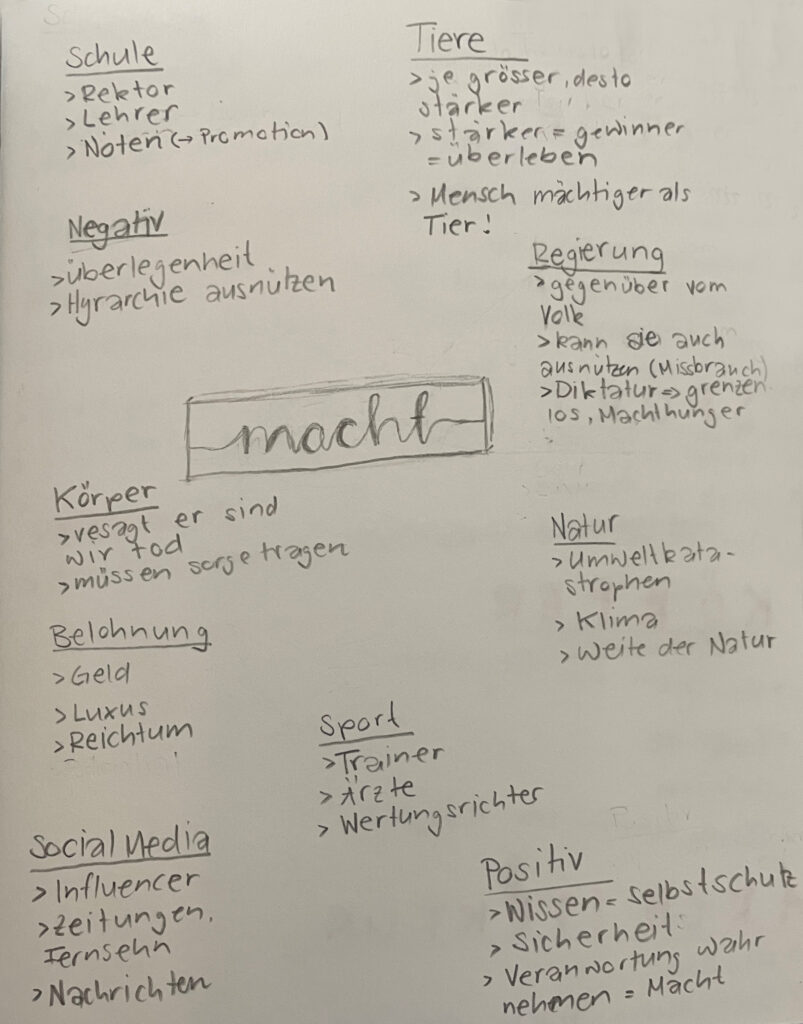 Schule
> Rektor
> Lehrer
> Noten (→ Promotion)
Tiere
> je grösser, desto
stärker
> stärker = gewinner
= überleben
> Mensch mächtiger als
Tier!
Negativ
> überlegenheit
> Hyrarchie ausnützen
Regierung
> gegenüber vom
Volk
> kann sie auch
ausnützen (Missbrauch)
> Diktatur => grenzen
los, Machthunger
macht
Körper
> vesagt er sind
wir tod
> müssen sorge tragen
Natur
> Umweltkata-
strophen
> Klima
> Weite der Natur
Belohnung
> Geld
> Luxus
> Reichtum
Sport
> Trainer
> Ärzte
> Wertungsrichter
Social Media
> Influencer
> Zeitungen,
Fernsehn
> Nachrichten
Positiv
> Wissen = selbstschutz
> Sicherheit
> Veranwortung wahr
nehmen = Macht